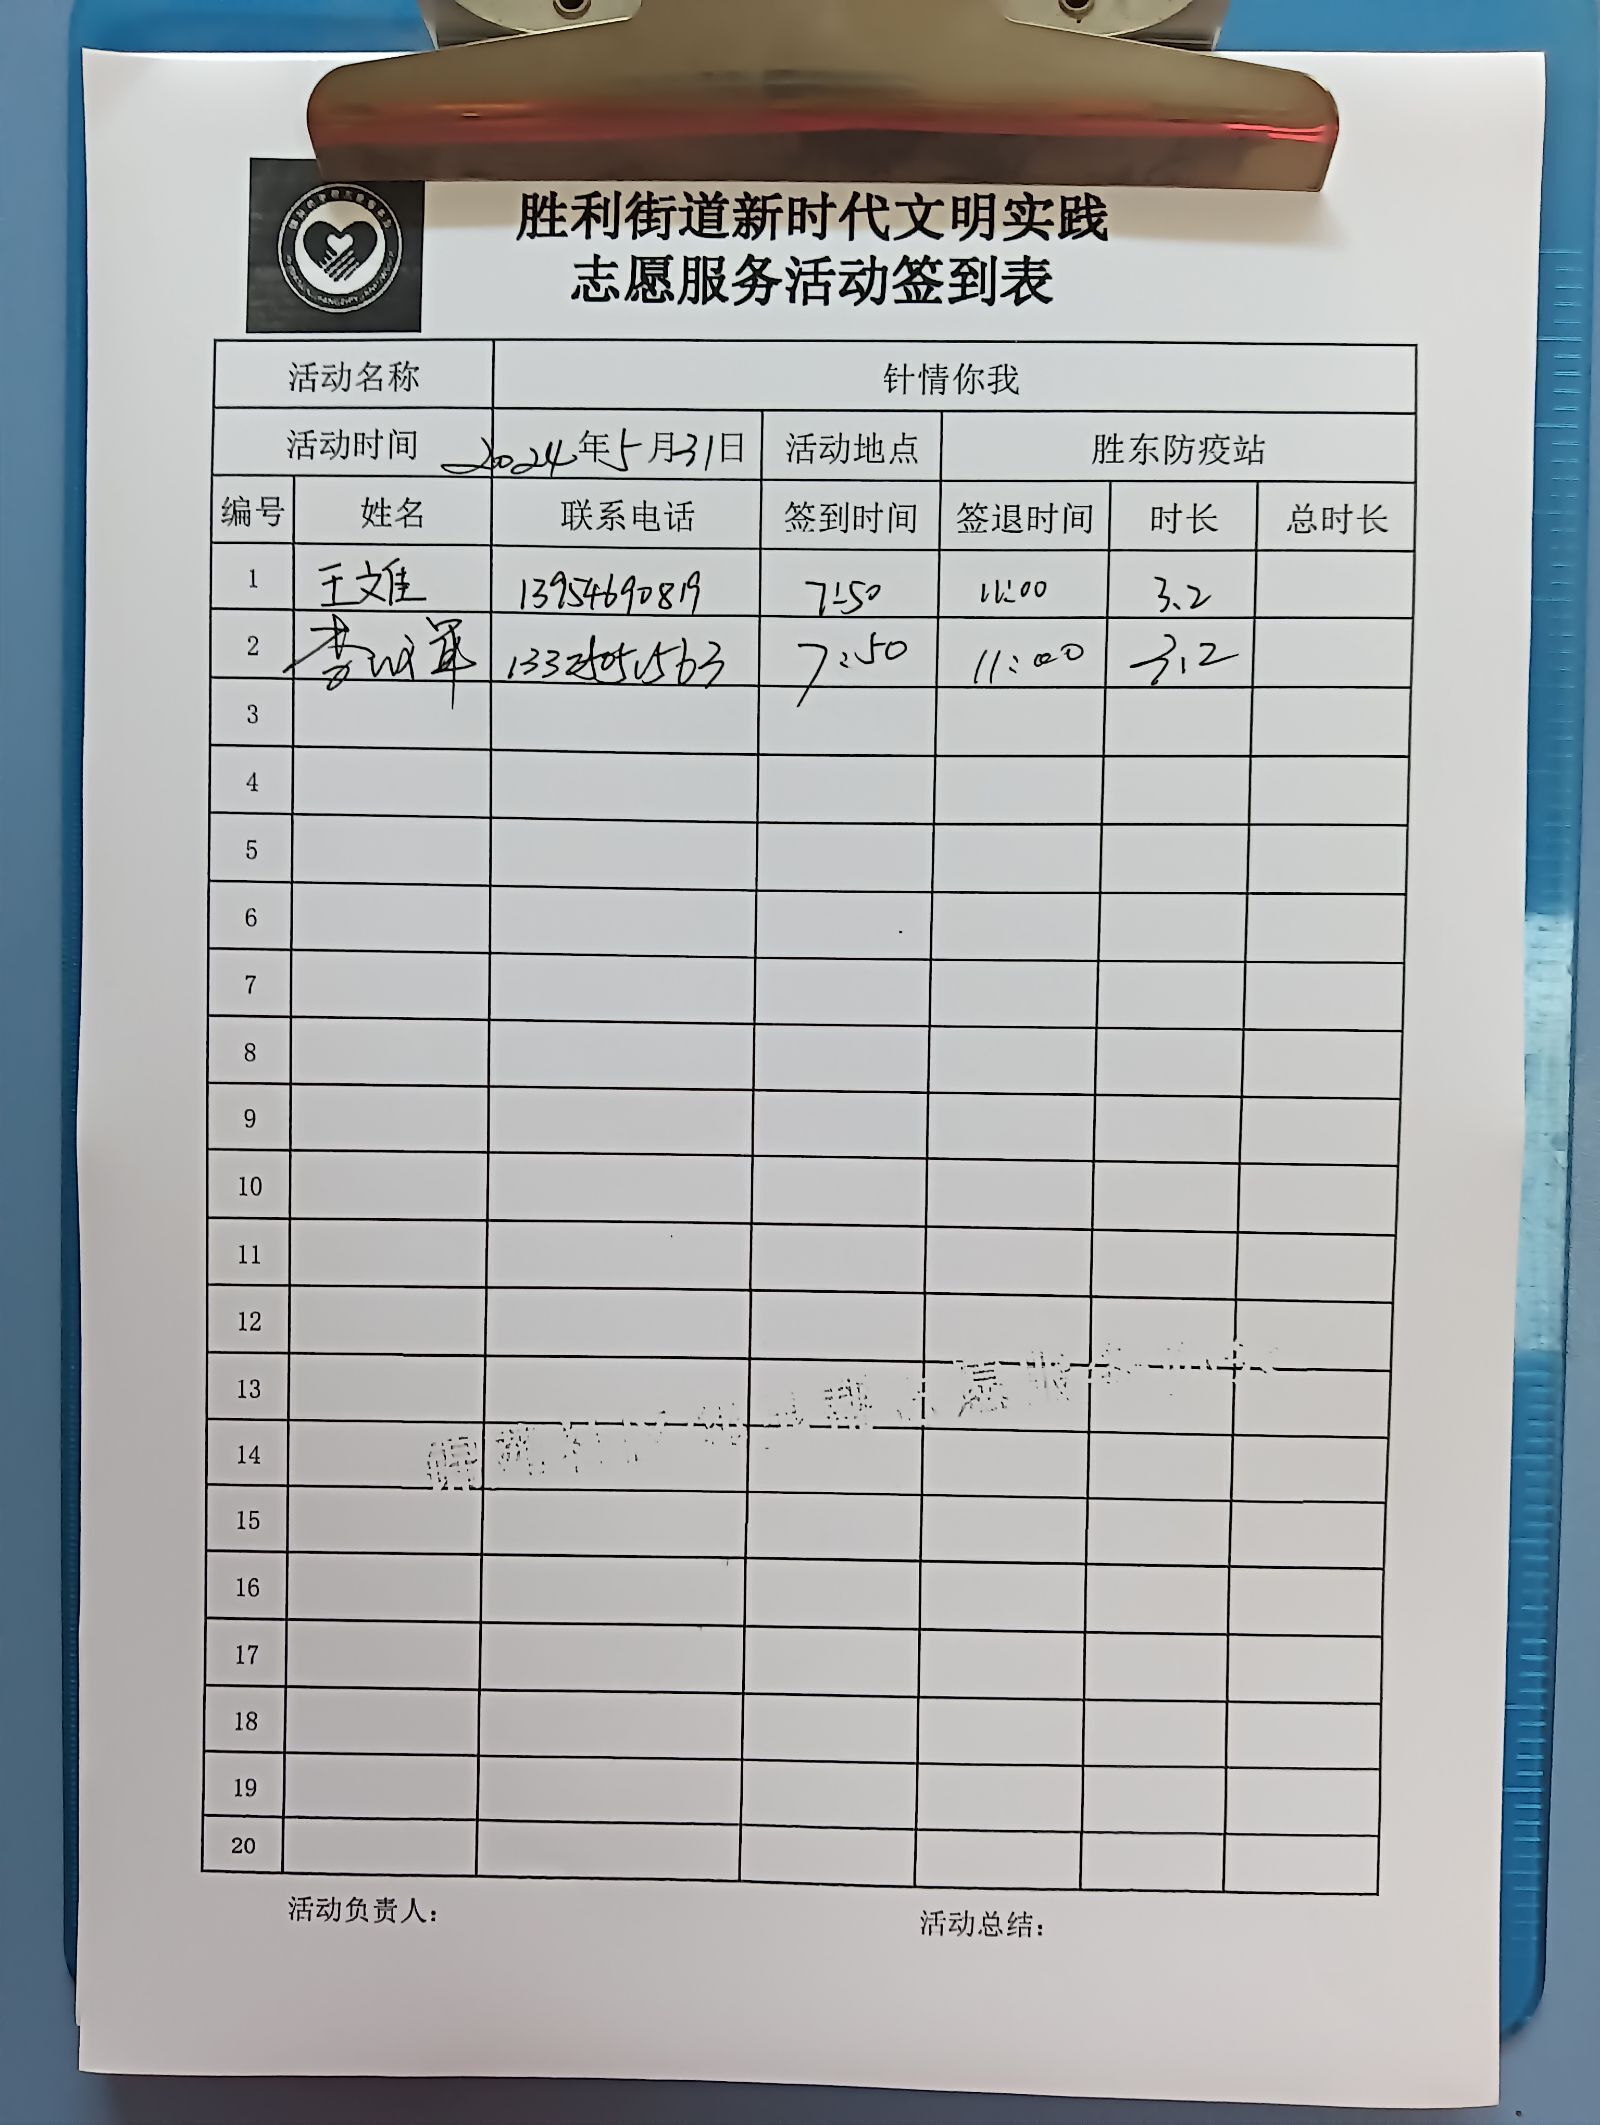 胜利街道新时代文明实践
志愿服务活动签到表
活动名称 针情你我
活动时间 2024年5月31日 活动地点 胜东防疫站
编号 姓名 联系电话 签到时间 签退时间 时长 总时长
1 王文佳 13954690819 7:50 11:00 3.2
2 李 军 7:50 11:00 3.2
3
4
5
6
7
8
9
10
11
12
13
14
15
16
17
18
19
20
活动负责人: 活动总结: